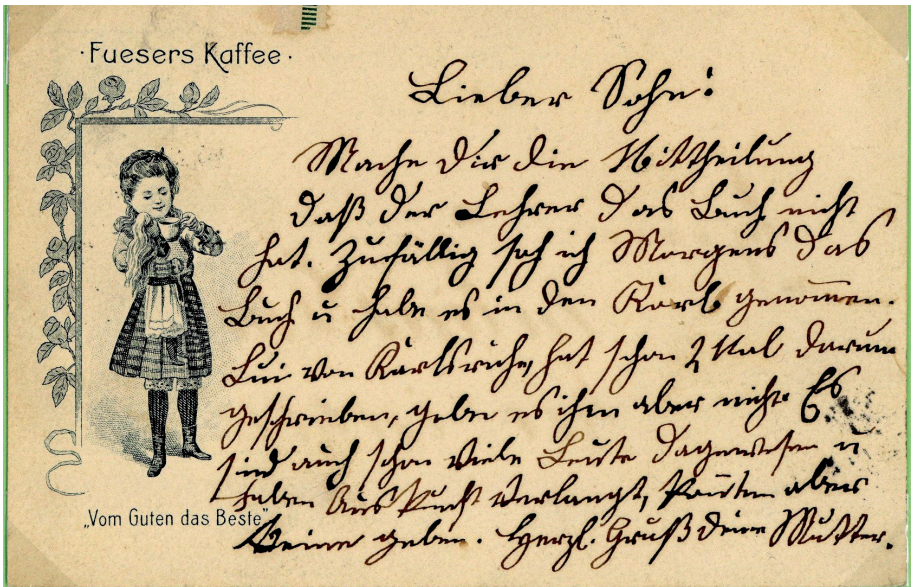 · Fuesers Kaffee ·
Lieber Sohn!
Mache Dir die Mittheilung
daß der Lehrer das Buch nicht
hat. Zufällig sah ich Morgens das
Buch u habe es in den Korb genommen.
von Karlsruhe, hat schon 2 Mal darum
geschrieben, gebe es ihm aber nicht. Es
sind auch schon viele Leute dagewesen u
haben Auskunft verlangt, konnten aber
keine geben. Herzl. Gruß Deine Mutter.
„Vom Guten das Beste“